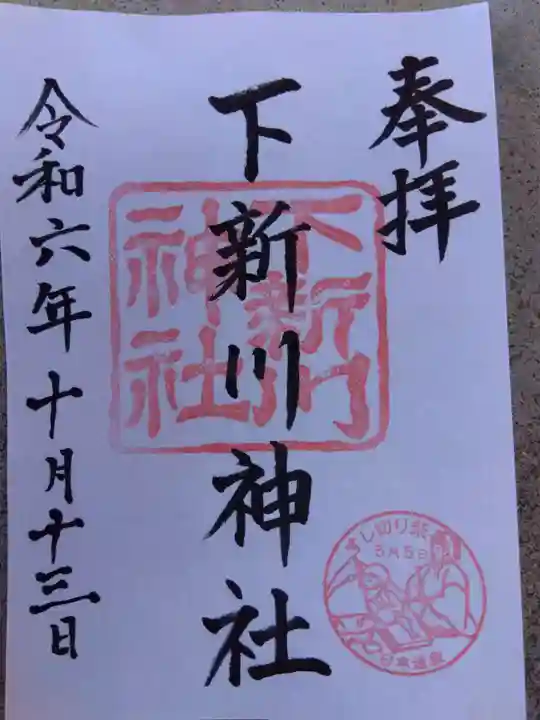 奉拝
下新川神社
下新川
神社
令和六年十月十三日
すし切り祭
5月5日
日本遺産